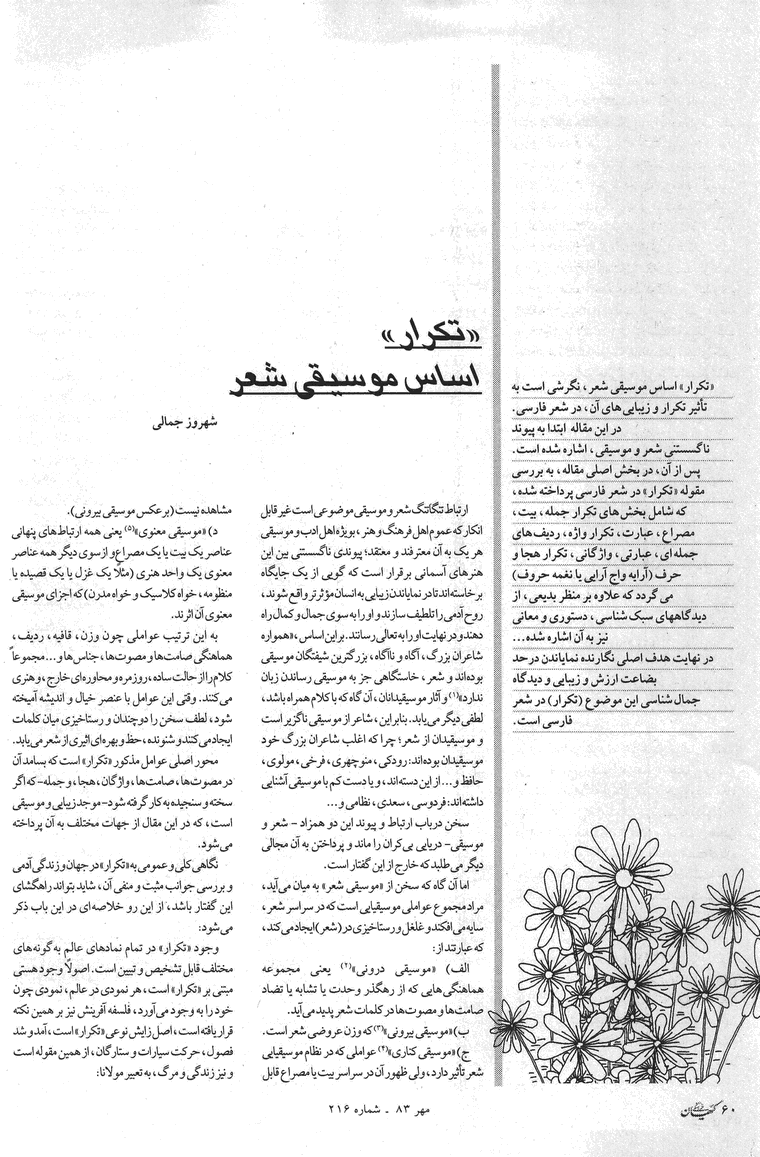 «تکرار»
اساس موسیقی شعر
شهروز جمالی
«تکرار» اساس موسیقی شعر، نگرشی است به
تأثیر تکرار و زیبایی‌های آن، در شعر فارسی.
در این مقاله ابتدا به پیوند
ناگسستنی شعر و موسیقی، اشاره شده است.
پس از آن، در بخش اصلی مقاله، به بررسی
مقوله «تکرار» در شعر فارسی پرداخته شده،
که شامل بخش‌های تکرار جمله، بیت،
مصراع، عبارت، تکرار واژه، ردیف‌های
جمله‌ای، عبارتی، واژگانی، تکرار هجا و
حرف (آرایه واج آرایی یا نغمه حروف)
می گردد که علاوه بر منظر بدیعی، از
دیدگاههای سبک شناسی، دستوری و معانی
نیز به آن اشاره شده...
در نهایت هدف اصلی نگارنده نمایاندن در حد
بضاعت ارزش و زیبایی و دیدگاه
جمال شناسی این موضوع (تکرار) در شعر
فارسی است.
ارتباط تنگاتنگ شعر و موسیقی موضوعی است غیر قابل
انکار که عموم اهل فرهنگ و هنر، بویژه اهل ادب و موسیقی
هر یک به آن معترفند و معتقد؛ پیوندی ناگسستنی بین این
هنرهای آسمانی برقرار است که گویی از یک جایگاه
برخاسته‌اند تا در نمایاندن زیبایی به انسان مؤثرتر واقع شوند،
روح آدمی را تلطیف سازند و او را به سوی جمال و کمال راه
دهند و در نهایت او را به تعالی رسانند. بر این اساس، «همواره
شاعران بزرگ، آگاه و ناآگاه، بزرگترین شیفتگان موسیقی
بوده‌اند و شعر، خاستگاهی جز به موسیقی رساندن زبان
ندارد»(۱) و آثار موسیقیدانان، آن گاه که با کلام همراه باشد،
لطفی دیگر می‌یابد. بنابراین، شاعر از موسیقی ناگزیر است
و موسیقیدان از شعر؛ چرا که اغلب شاعران بزرگ خود
موسیقیدان بوده‌اند: رودکی، منوچهری، فرخی، مولوی،
حافظ و... از این دسته‌اند، و یا دست کم با موسیقی آشنایی
داشته‌اند: فردوسی، سعدی، نظامی و...
سخن در باب ارتباط و پیوند این دو همزاد - شعر و
موسیقی- دریایی بی‌کران را ماند و پرداختن به آن مجالی
دیگر می طلبد که خارج از این گفتار است.
اما آن گاه که سخن از «موسیقی شعر» به میان می‌آید،
مراد مجموع عواملی موسیقیایی است که در سراسر شعر،
سایه می‌افکند و غلغل و رستاخیزی در (شعر) ایجاد می‌کند،
که عبارتند از:
الف) «موسیقی درونی»(۲) یعنی مجموعه
هماهنگی هایی که از رهگذر وحدت یا تشابه یا تضاد
صامت‌ها و مصوت‌ها در کلمات شعر پدید می‌آید.
ب) «موسیقی بیرونی»(۳) که وزن عروضی شعر است.
ج) «موسیقی کناری»(۴) عواملی که در نظام موسیقیایی
شعر تأثیر دارد، ولی ظهور آن در سراسر بیت یا مصراع قابل
مشاهده نیست (بر عکس موسیقی بیرونی).
د) «موسیقی معنوی»(۵) یعنی همه ارتباط‌های پنهانی
عناصر یک بیت یا یک مصراع و از سوی دیگر همه عناصر
معنوی یک واحد هنری (مثلاً یک غزل یا یک قصیده یا
منظومه، خواه کلاسیک و خواه مدرن) که اجزای موسیقی
معنوی آن اثرند.
به این ترتیب عواملی چون وزن، قافیه، ردیف،
هماهنگی صامت‌ها و مصوت‌ها، جناس‌ها و... مجموعاً
کلام را از حالت ساده، روزمره و محاوره‌ای خارج، و هنری
می‌کنند. وقتی این عوامل با عنصر خیال و اندیشه آمیخته
شود، لطف سخن را دوچندان و رستاخیزی میان کلمات
ایجاد می‌کند و شنونده، حظ و بهره‌ای اثیری از شعر می‌یابد.
محور اصلی عوامل مذکور «تکرار» است که بسامد آن
در مصوت‌ها، صامت‌ها، واژگان، هجا، و جمله- که اگر
سخته و سنجیده به کار گرفته شود- موجد زیبایی و موسیقی
است، که در این مقال از جهات مختلف به آن پرداخته
می‌شود.
نگاهی کلی و عمومی به «تکرار» در جهان و زندگی آدمی
و بررسی جوانب مثبت و منفی آن، شاید بتواند راهگشای
این گفتار باشد، از این رو خلاصه‌ای در این باب ذکر
می‌شود:
وجود «تکرار» در تمام نمادهای عالم به گونه‌های
مختلف قابل تشخیص و تبیین است. اصولاً وجود هستی
مبتنی بر «تکرار» است، هر نمودی در عالم، نمودی چون
خود را به وجود می‌آورد، فلسفه آفرینش نیز بر همین نکته
قرار یافته است، اصل زایش نوعی «تکرار» است، آمد و شد
فصول، حرکت سیارات و ستارگان، از همین مقوله است
و نیز زندگی و مرگ، به تعبیر مولانا:
۶۰ کیهان
مهر ۸۳ ـ شماره ۲۱۶